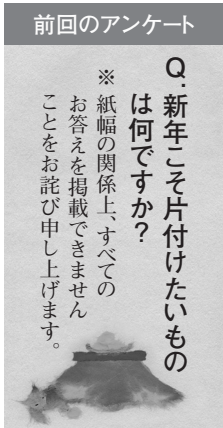 前回のアンケート
Q.新年こそ片付けたいもの
は何ですか？
※紙幅の関係上、すべての
お答えを掲載できません
ことをお詫び申し上げます。